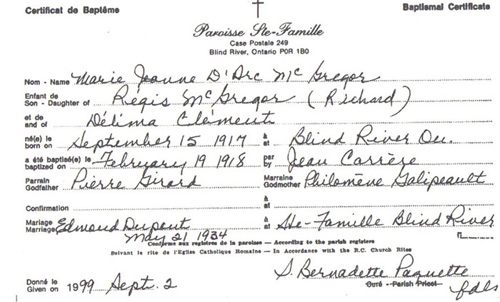 Certificat de Baptême
Baptismal Certificate
Paroisse Ste-Famille
Case Postale 249
Blind River, Ontario P0R 1B0
Nom - Name Marie Jeanne D'Arc McGregor
Enfant de
Son - Daughter of Régis McGregor (Richard)
et de
and of Délima Clément
né(e) le
born on September 15 1917
à
at Blind River On.
a été baptisé(e) le
baptized on February 19 1918
par
by Jean Carrière
Parrain
Godfather Pierre Girard
Marraine
Godmother Philomène Galipeault
Confirmation
à
at
Mariage
Marriage Edmond Dupont
May 21 1934
à
at Ste-Famille Blind River
Conforme aux registres de la paroisse — According to the parish registers
Suivant le rite de l'Eglise Catholique Romaine — In Accordance with the R.C. Church Rites
Donné le
Given on 1999 Sept. 2
S. Bernadette Paquette
Curé - Parish Priest